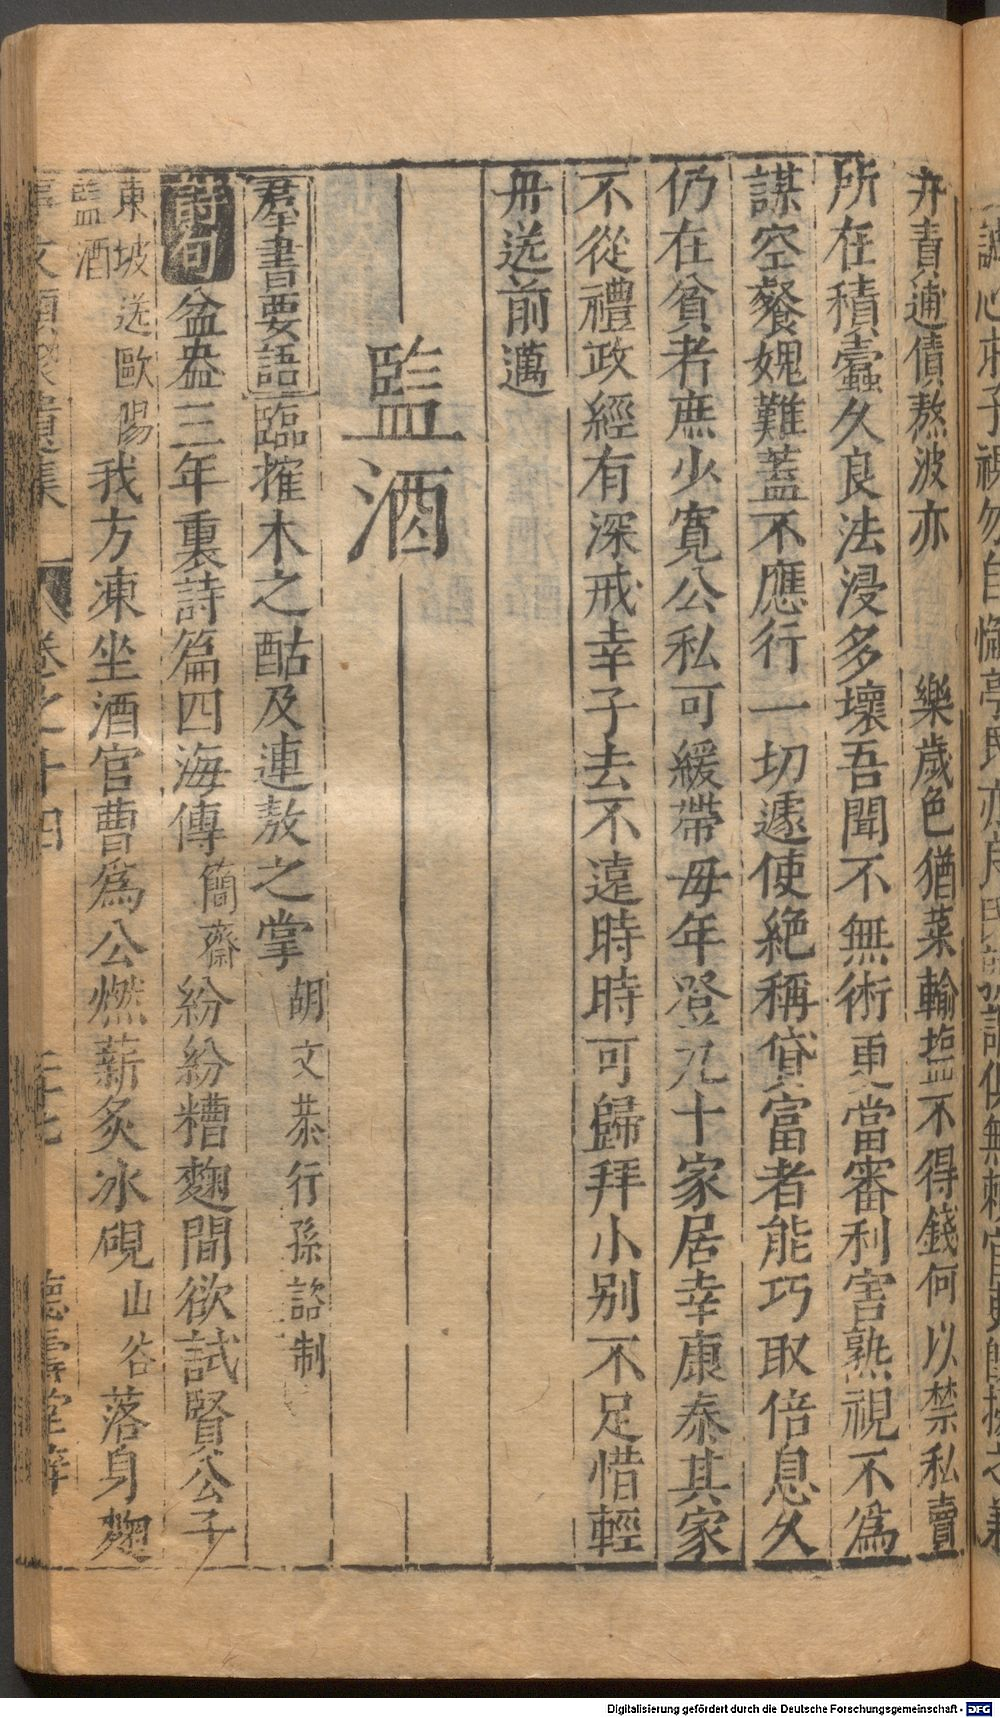 弁責逋債熬波亦　樂歲色猶菜輸塩不得錢何以禁私賣
所在積蠹久良法浸多壞吾聞不無術更當審利害熟視不爲
謀空餐媿難蓋不應行一切遽使絶稱貸富者能巧取倍息久
仍在貧者庶少寬公私可緩帶毋年登九十家居幸康泰其家
不從禮政經有深戒幸子去不遠時時可歸拜小别不足惜輕
毋送前邁
監酒
羣書要語 臨搉木之酤及連敖之掌 胡文恭行孫 制
詩句 盆盎三年裏詩篇四海傳 簡齋 紛紛糟麴間欲試賢公子
東坡送歐陽監酒 我方凍坐酒官曹爲公燃薪炙冰硯 山谷 落身麴
事文類聚遺集 卷之十四 德壽堂梓
Digitalisierung gefördert durch die Deutsche Forschungsgemeinschaft - DFG